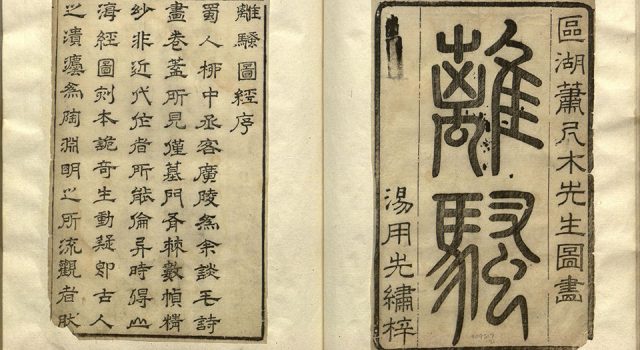 區湖蕭尺木先生圖畫
離騷
湯用先繡梓
離騷圖經序
蜀人柳中丞客廣陵為余談毛詩
畫卷蓋所見僅墓門斧棘數幀精
玅非近代作者所能倫异時得山
海經圖刻本詭奇生動疑即古人
之為陶淵明之所流觀者肰